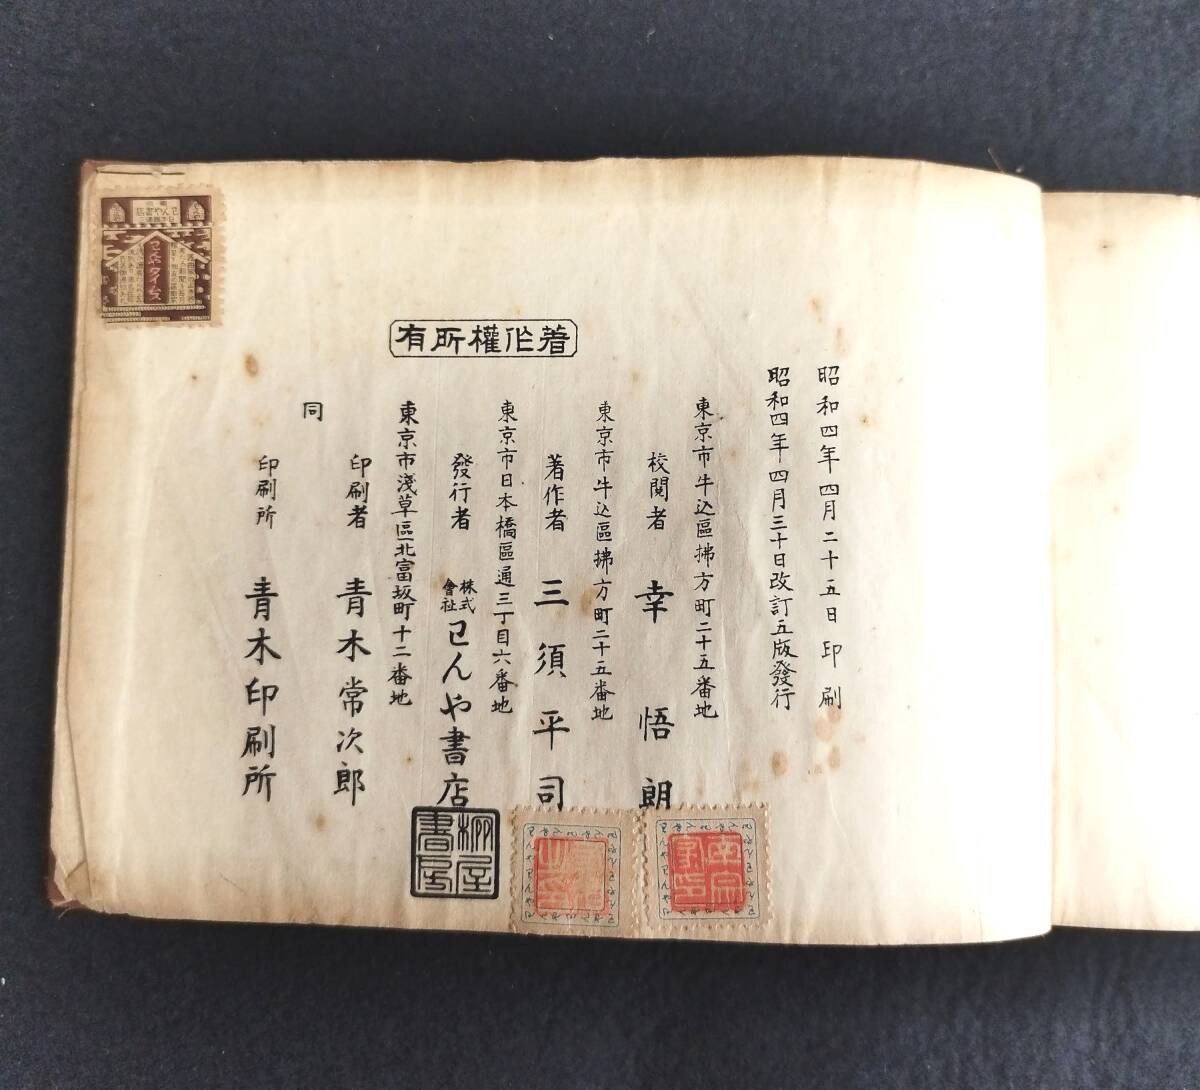 昭和四年四月二十五日印刷
昭和四年四月三十日改訂五版發行
著作權所有
東京市牛込區拂方町二十五番地
校閲者 幸悟朗
東京市牛込區拂方町二十五番地
著作者 三須平司
東京市日本橋區通三丁目六番地
發行者 株式會社 巳んや書店
東京市淺草區北富坂町十二番地
印刷者 青木常次郎
同
印刷所 青木印刷所
柳屋書房
タイムス